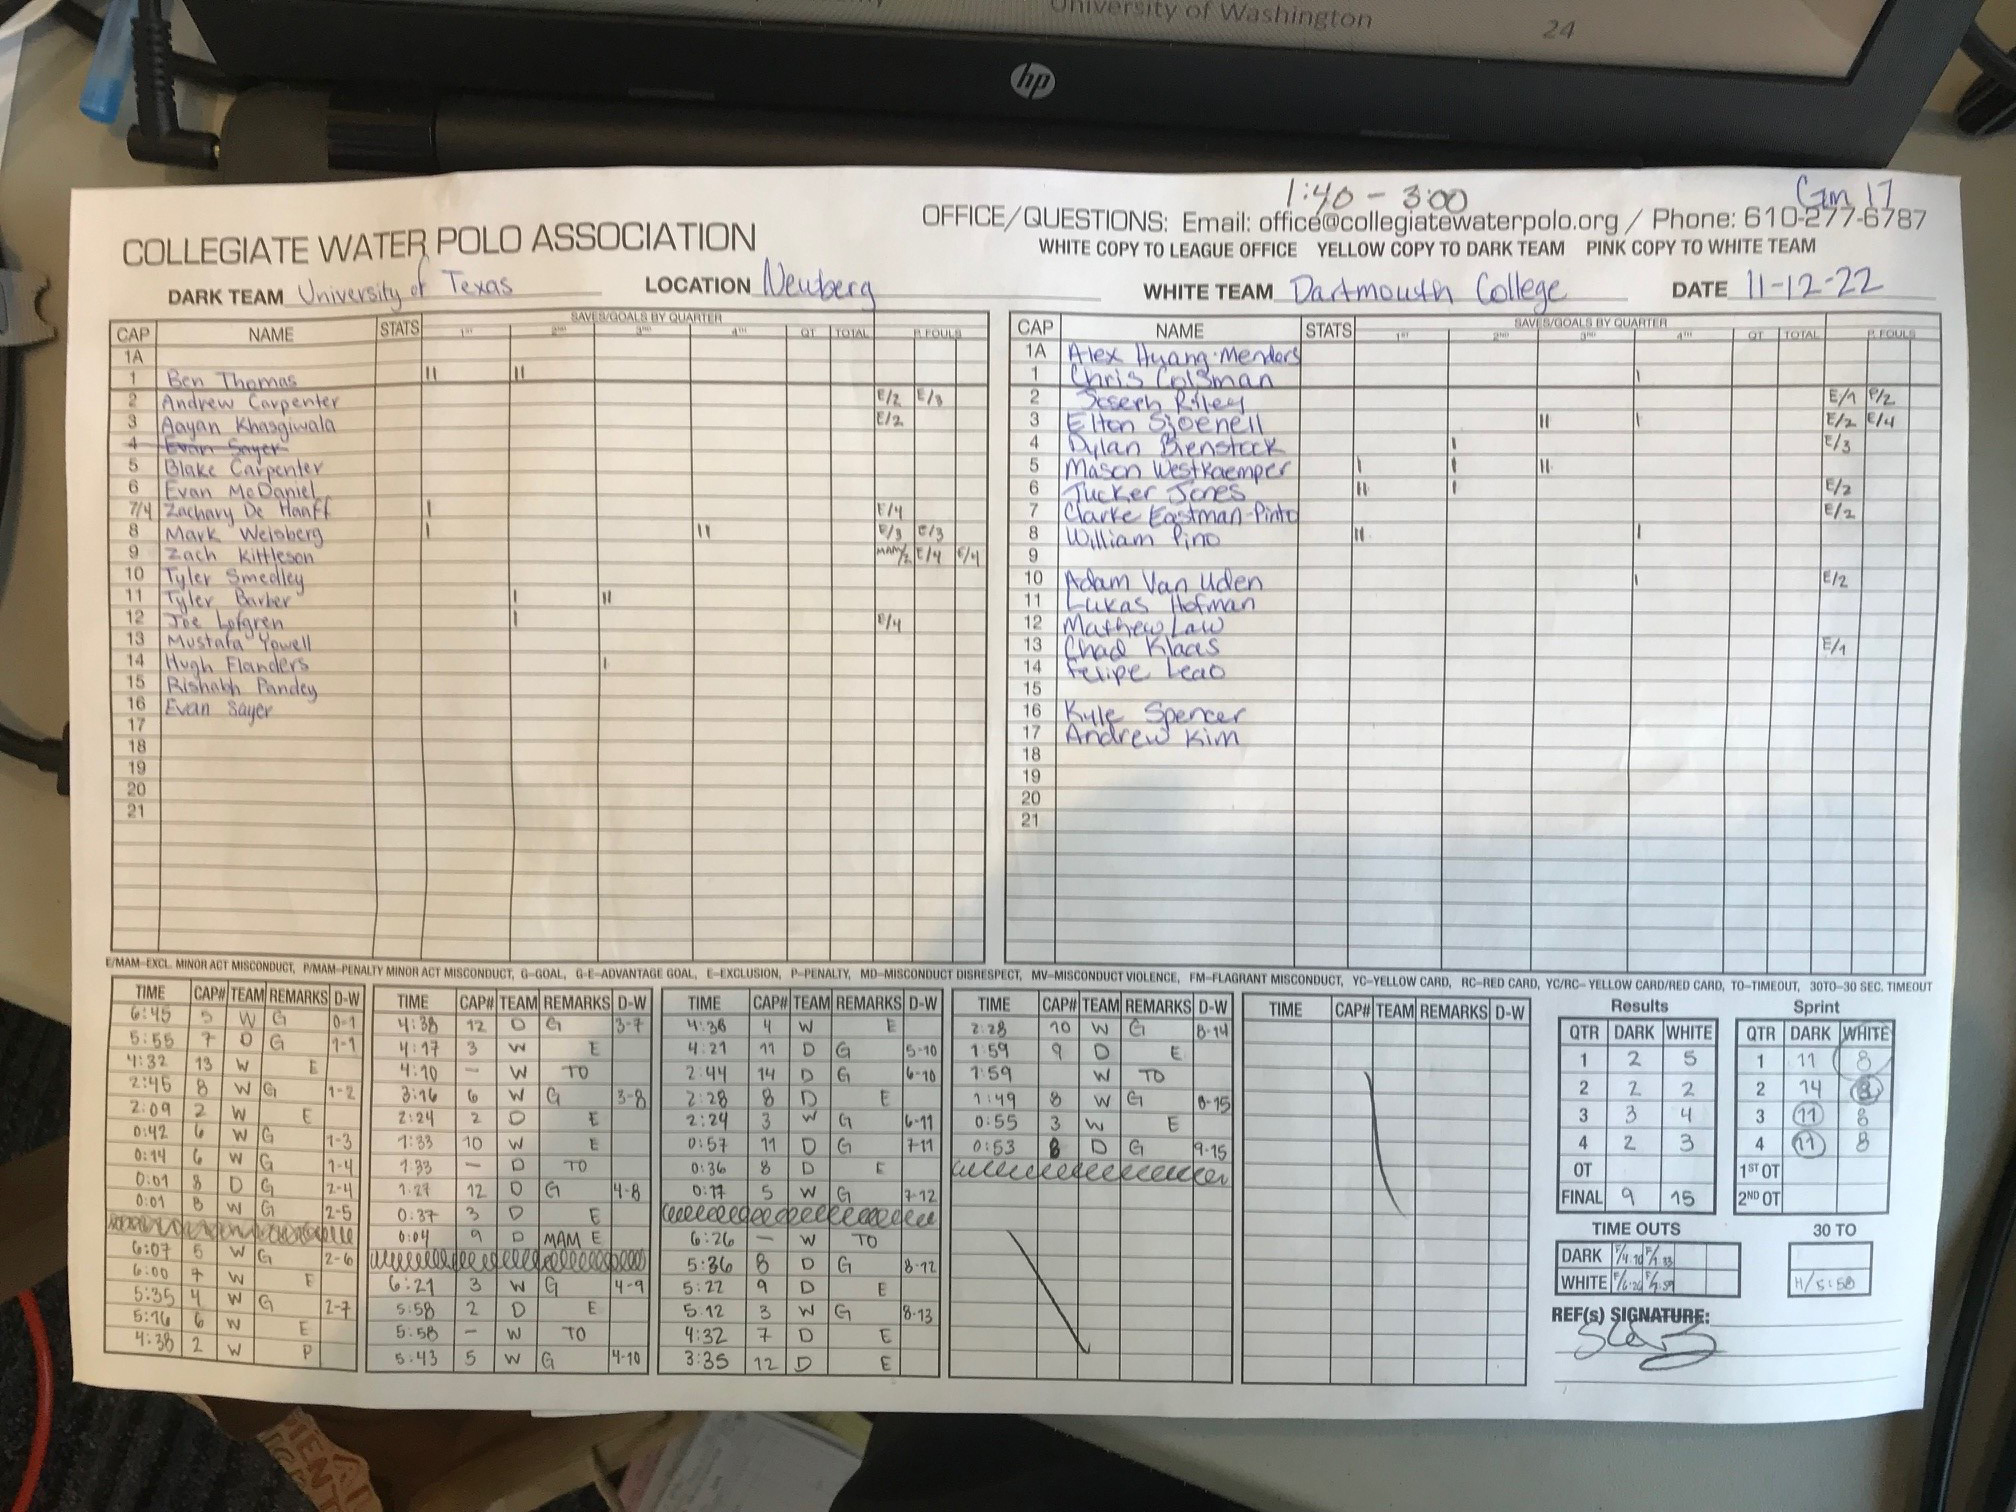 University of Washington
24
hp
1:40 - 3:00
Gm 17
OFFICE/QUESTIONS: Email: office@collegiatewaterpolo.org / Phone: 610-277-6787
COLLEGIATE WATER POLO ASSOCIATION
WHITE COPY TO LEAGUE OFFICE YELLOW COPY TO DARK TEAM PINK COPY TO WHITE TEAM
DARK TEAM University of Texas LOCATION Newberg WHITE TEAM Dartmouth College DATE 11-12-22
CAP NAME STATS SAVES/GOALS BY QUARTER 1ST 2ND 3RD 4TH OT TOTAL P. FOULS
1A
1 Ben Thomas II II
2 Andrew Carpenter E/2 E/3
3 Aayan Khasgiwala E/2
4 Evan Sayer
5 Blake Carpenter
6 Evan McDaniel
7/4 Zachary De Haaff I E/4
8 Mark Weisberg I II E/3 E/3
9 Zach Kittleson MAM/2 E/4 E/4
10 Tyler Smedley
11 Tyler Barber I II
12 Joe Lofgren I E/4
13 Mustafa Yowell
14 Hugh Flanders I
15 Rishabh Pandey
16 Evan Sayer
17
18
19
20
21
CAP NAME STATS SAVES/GOALS BY QUARTER 1ST 2ND 3RD 4TH OT TOTAL P. FOULS
1A Alex Huang-Mendors
1 Chris Colsman I
2 Joseph Riley E/1 P/2
3 Elton Sjoenell II I E/2 E/4
4 Dylan Bienstock I E/3
5 Mason Westkaemper I I II
6 Tucker Jones II I E/2
7 Clarke Eastman-Pinto E/2
8 William Pino II I
9
10 Adam Van Uden I E/2
11 Lukas Hofman
12 Mathew Law
13 Chad Klaas E/1
14 Felipe Leao
15
16 Kyle Spencer
17 Andrew Kim
18
19
20
21
E/MAM-EXCL. MINOR ACT MISCONDUCT, P/MAM-PENALTY MINOR ACT MISCONDUCT, G-GOAL, G-E-ADVANTAGE GOAL, E-EXCLUSION, P-PENALTY, MD-MISCONDUCT DISRESPECT, MV-MISCONDUCT VIOLENCE, FM-FLAGRANT MISCONDUCT, YC-YELLOW CARD, RC-RED CARD, YC/RC-YELLOW CARD/RED CARD, TO-TIMEOUT, 30TO-30 SEC. TIMEOUT
TIME CAP# TEAM REMARKS D-W
6:45 5 W G 0-1
5:55 7 D G 1-1
4:32 13 W E
2:45 8 W G 1-2
2:09 2 W E
0:42 6 W G 1-3
0:14 6 W G 1-4
0:01 8 D G 2-4
0:01 8 W G 2-5
6:07 5 W G 2-6
6:00 7 W E
5:35 4 W G 2-7
5:16 6 W E
4:38 2 W P
TIME CAP# TEAM REMARKS D-W
4:38 12 D G 3-7
4:17 3 W E
4:10 - W TO
3:16 6 W G 3-8
2:24 2 D E
1:33 10 W E
1:33 - D TO
1:27 12 D G 4-8
0:37 3 D E
0:04 9 D MAM E
6:21 3 W G 4-9
5:58 2 D E
5:58 - W TO
5:43 5 W G 4-10
TIME CAP# TEAM REMARKS D-W
4:36 4 W E
4:21 11 D G 5-10
2:44 14 D G 6-10
2:28 8 D E
2:24 3 W G 6-11
0:57 11 D G 7-11
0:36 8 D E
0:17 5 W G 7-12
6:26 - W TO
5:36 8 D G 8-12
5:22 9 D E
5:12 3 W G 8-13
4:32 7 D E
3:35 12 D E
TIME CAP# TEAM REMARKS D-W
2:28 10 W G 8-14
1:59 9 D E
1:59 W TO
1:49 8 W G 8-15
0:55 3 W E
0:53 8 D G 9-15
TIME CAP# TEAM REMARKS D-W
Results
QTR DARK WHITE
1 2 5
2 2 2
3 3 4
4 2 3
OT
FINAL 9 15
Sprint
QTR DARK WHITE
1 11 8
2 14 8
3 11 8
4 11 8
1ST OT
2ND OT
TIME OUTS
DARK F/4:10 F/1:33
WHITE F/6:26 F/1:59
30 TO
H/5:58
REF(s) SIGNATURE: